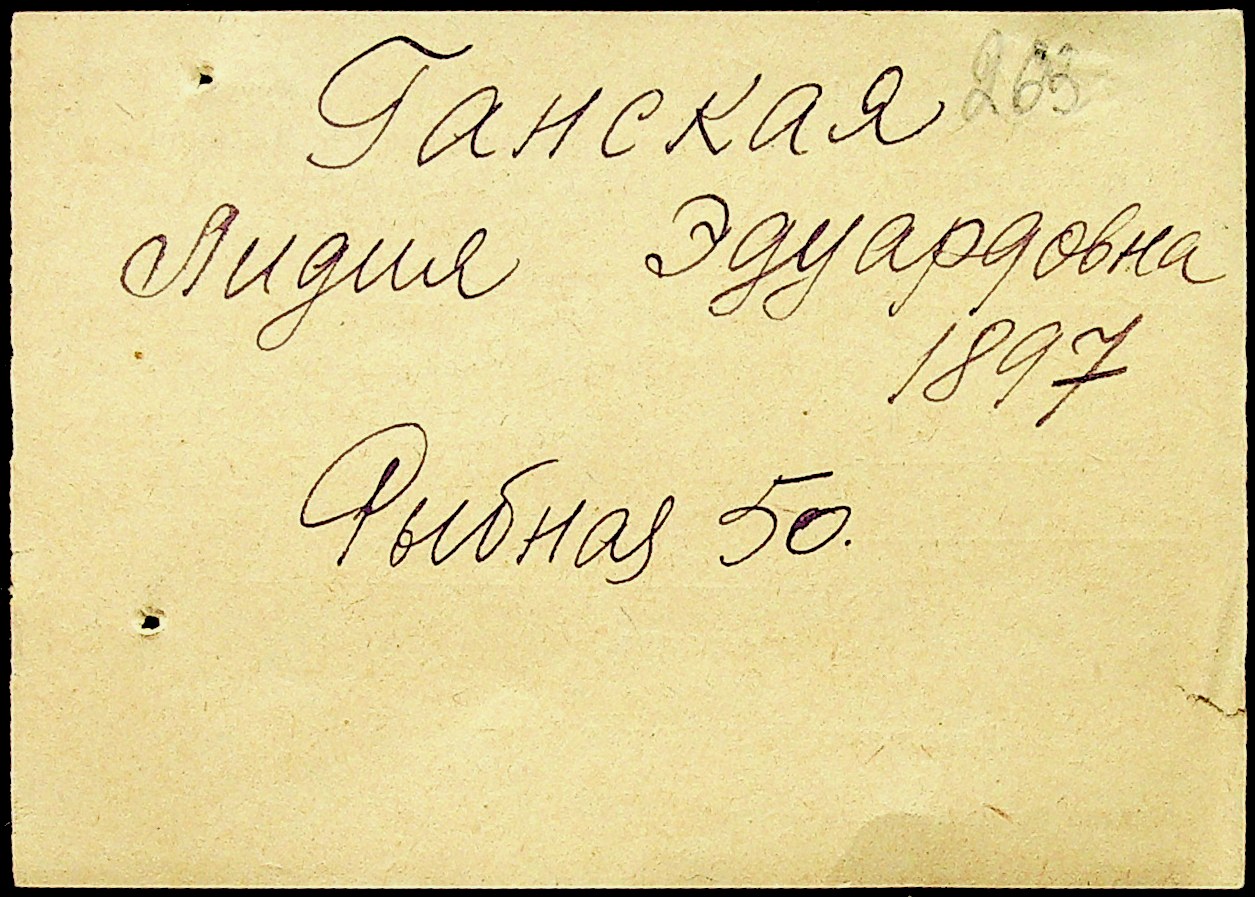 Ганская 263
Лидия Эдуардовна
1897
Рыбная 50.